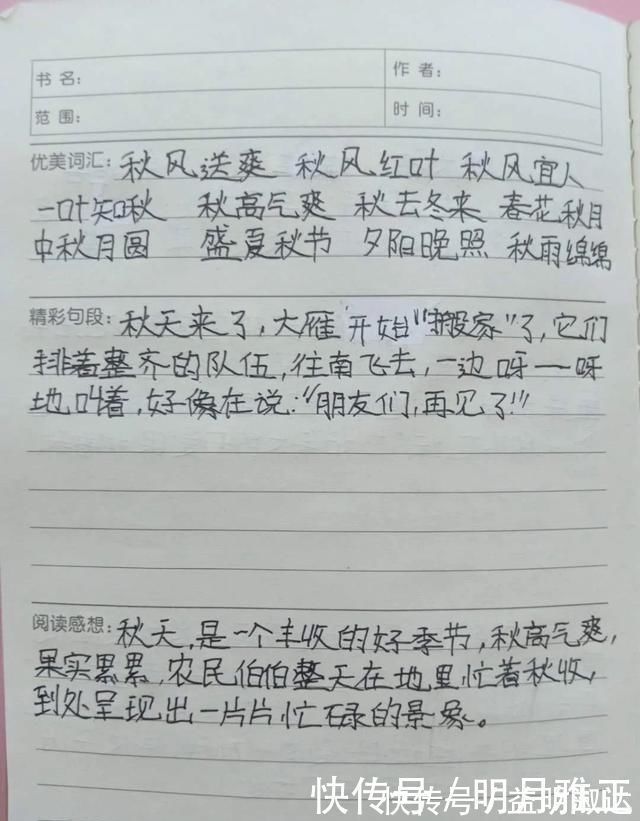 书名： 作者：
范围： 时间：
优美词汇：秋风送爽 秋风红叶 秋风宜人
一叶知秋 秋高气爽 秋去冬来 春花秋月
中秋月圆 盛夏秋节 夕阳晚照 秋雨绵绵
精彩句段：秋天来了，大雁开始“搬家”了，它们
排着整齐的队伍，往南飞去，一边呀一呀
地叫着，好像在说：“朋友们，再见了！”
阅读感想：秋天，是一个丰收的好季节，秋高气爽，
果实累累，农民伯伯整天在地里忙着秋收，
到处呈现出一片片忙碌的景象。
快传号/明月雅正
快传号